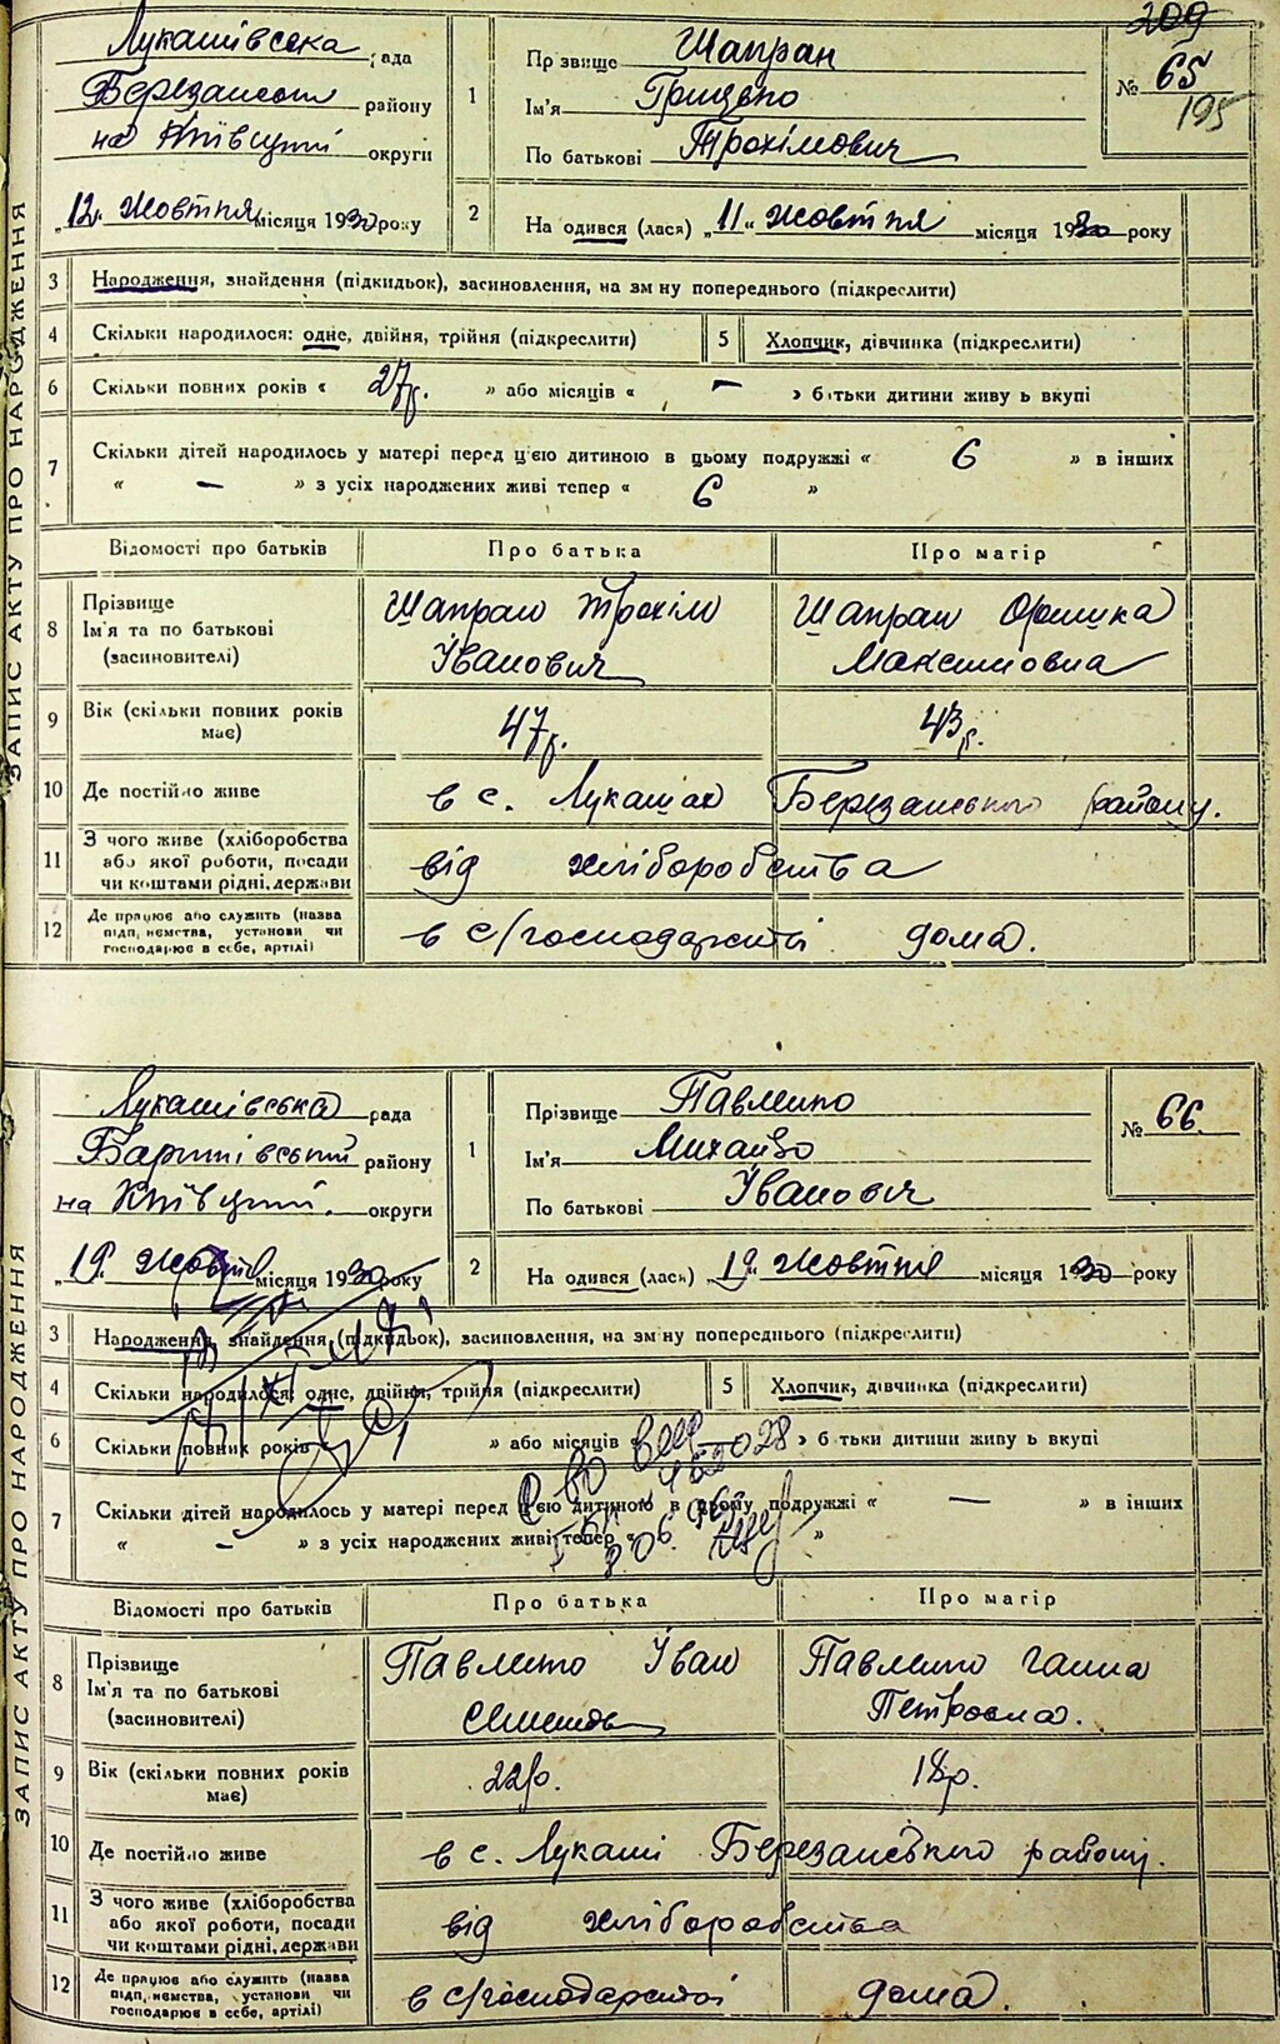 209
Лукашівсека рада
Березансько району
на Київщині округи
„12" Жовтня місяця 1930 року
ЗАПИС АКТУ ПРО НАРОДЖЕННЯ
1 Прзвище Шапран
Ім'я Грицько
По батькові Трохімович
№ 65
195
2 На одився (лася) „11" жовтня місяця 1930 року
3 Народження, знайдення (підкидьок), засиновлення, на зм ну попереднього (підкреслити)
4 Скільки народилося: одне, двійня, трійня (підкреслити) 5 Хлопчик, дівчинка (підкреслити)
6 Скільки повних років « 27р. » або місяців « — » б тьки дитини живу ь вкупі
7 Скільки дітей народилось у матері перед ц'єю дитиною в цьому подружжі « 6 » в інших
« — » з усіх народжених живі тепер « 6 »
Відомості про батьків Про батька Про матір
8 Прізвище Шапран Трохім Шапран Оришка
Ім'я та по батькові Іванович Максимовна
(засиновителі)
9 Вік (скільки повних років 47р. 43р.
має)
10 Де постійно живе в с. Лукашах Березанського району.
11 З чого живе (хліборобства від хліборобства
або якої роботи, посади
чи коштами рідні, держави
12 Де працює або служить (назва в с/господарстві дома.
підп, немства, установи чи
господарює в себе, артілі)
Лукашівська рада
району
на Київщині. округи
„19" Жовтня місяця 1930 року
ЗАПИС АКТУ ПРО НАРОДЖЕННЯ
1 Прізвище Павленко
Ім'я Михайло
По батькові Іванович
№ 66.
2 На одився (лась) „19" Жовтня місяця 1930 року
3 Народження, знайдення (підкидьок), засиновлення, на зм ну попереднього (підкреслити)
4 Скільки народилося: одне, двійня, трійня (підкреслити) 5 Хлопчик, дівчинка (підкреслити)
6 Скільки повних років « 1 » або місяців « » б тьки дитини живу ь вкупі
7 Скільки дітей народилось у матері перед ц'єю дитиною в цьому подружжі « — » в інших
« — » з усіх народжених живі тепер « »
Відомості про батьків Про батька Про матір
8 Прізвище Павленко Іван Павленко Ганна
Ім'я та по батькові Петровна.
(засиновителі)
9 Вік (скільки повних років 22р. 18р.
має)
10 Де постійно живе в с. Лукаші Березанського району.
11 З чого живе (хліборобства від хліборобства
або якої роботи, посади
чи коштами рідні, держави
12 Де працює або служить (назва в с/господарстві дома.
підп, немства, установи чи
господарює в себе, артілі)